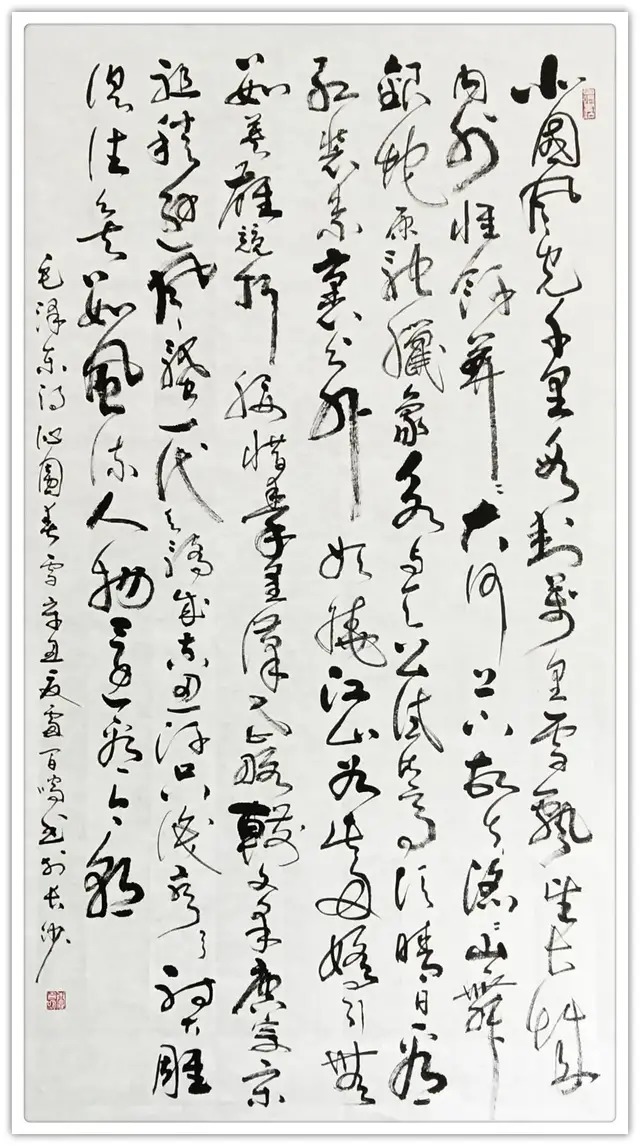 北國风光千里冰封萬里雪飘望长城
内外惟餘莽〻大河上下顿失滔〻山舞
銀蛇原驰臘象欲与天公试比高须晴日看
红装素裹分外妖娆江山如此多娇引無
數英雄競折腰惜秦皇漢武略輸文采唐宗宋
祖稍逊风骚一代天骄成吉思汗只识弯弓射大雕
俱往矣數風流人物还看今朝
毛泽东词沁園春雪辛丑夏雷百鸣书於长沙